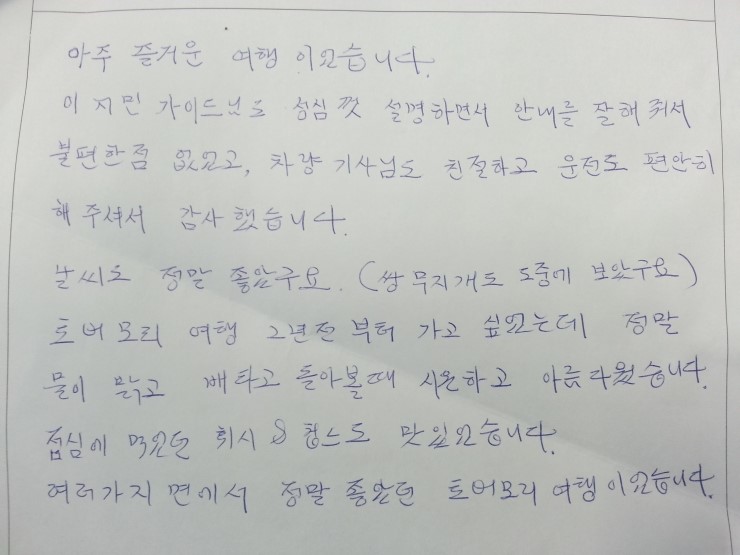 아주 즐거운 여행 이었습니다.
이지민 가이드님도 성심 껏 설명하면서 안내를 잘해 줘서
불편한점 없었고, 차량기사님도 친절하고 운전도 편안히
해 주셔서 감사했습니다.
날씨도 정말 좋았구요. (쌍무지개도 도중에 보았구요)
토버모리 여행 2년전 부터 가고 싶었는데 정말
물이 맑고 배타고 돌아볼때 시원하고 아름다웠습니다.
점심에 먹었던 휘시 & 칩스도 맛있었습니다.
여러가지 면에서 정말 좋았던 토버모리 여행이었습니다.